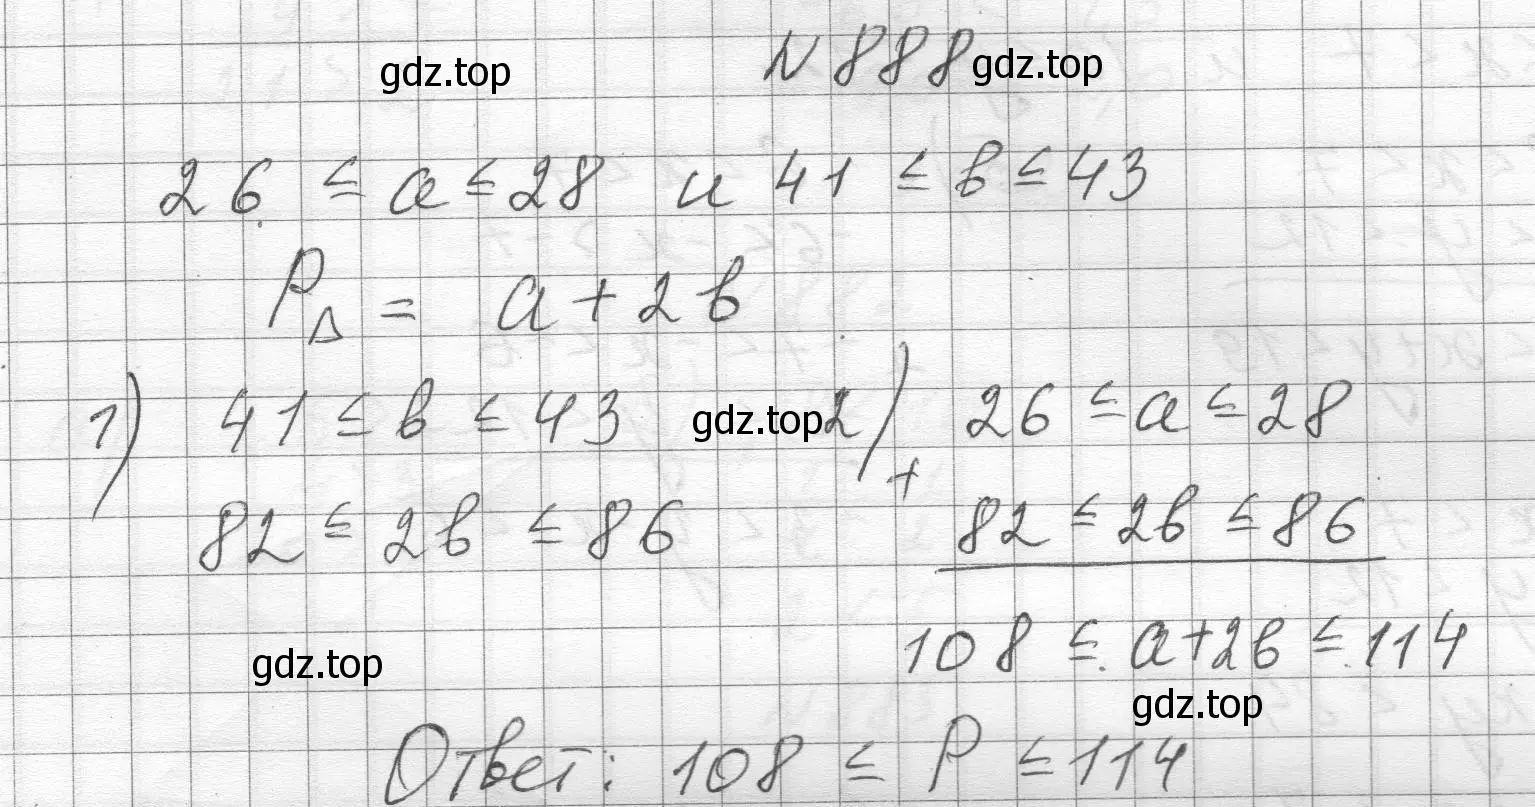 gdz.top N 888 gdz.top
26 ≤ a ≤ 28 и 41 ≤ b ≤ 43
P△ = a + 2b
1) 41 ≤ b ≤ 43 gdz.top 2) 26 ≤ a ≤ 28
82 ≤ 2b ≤ 86 + 82 ≤ 2b ≤ 86
108 ≤ a+2b ≤ 114
gdz.top gdz.top
Ответ: 108 ≤ P ≤ 114